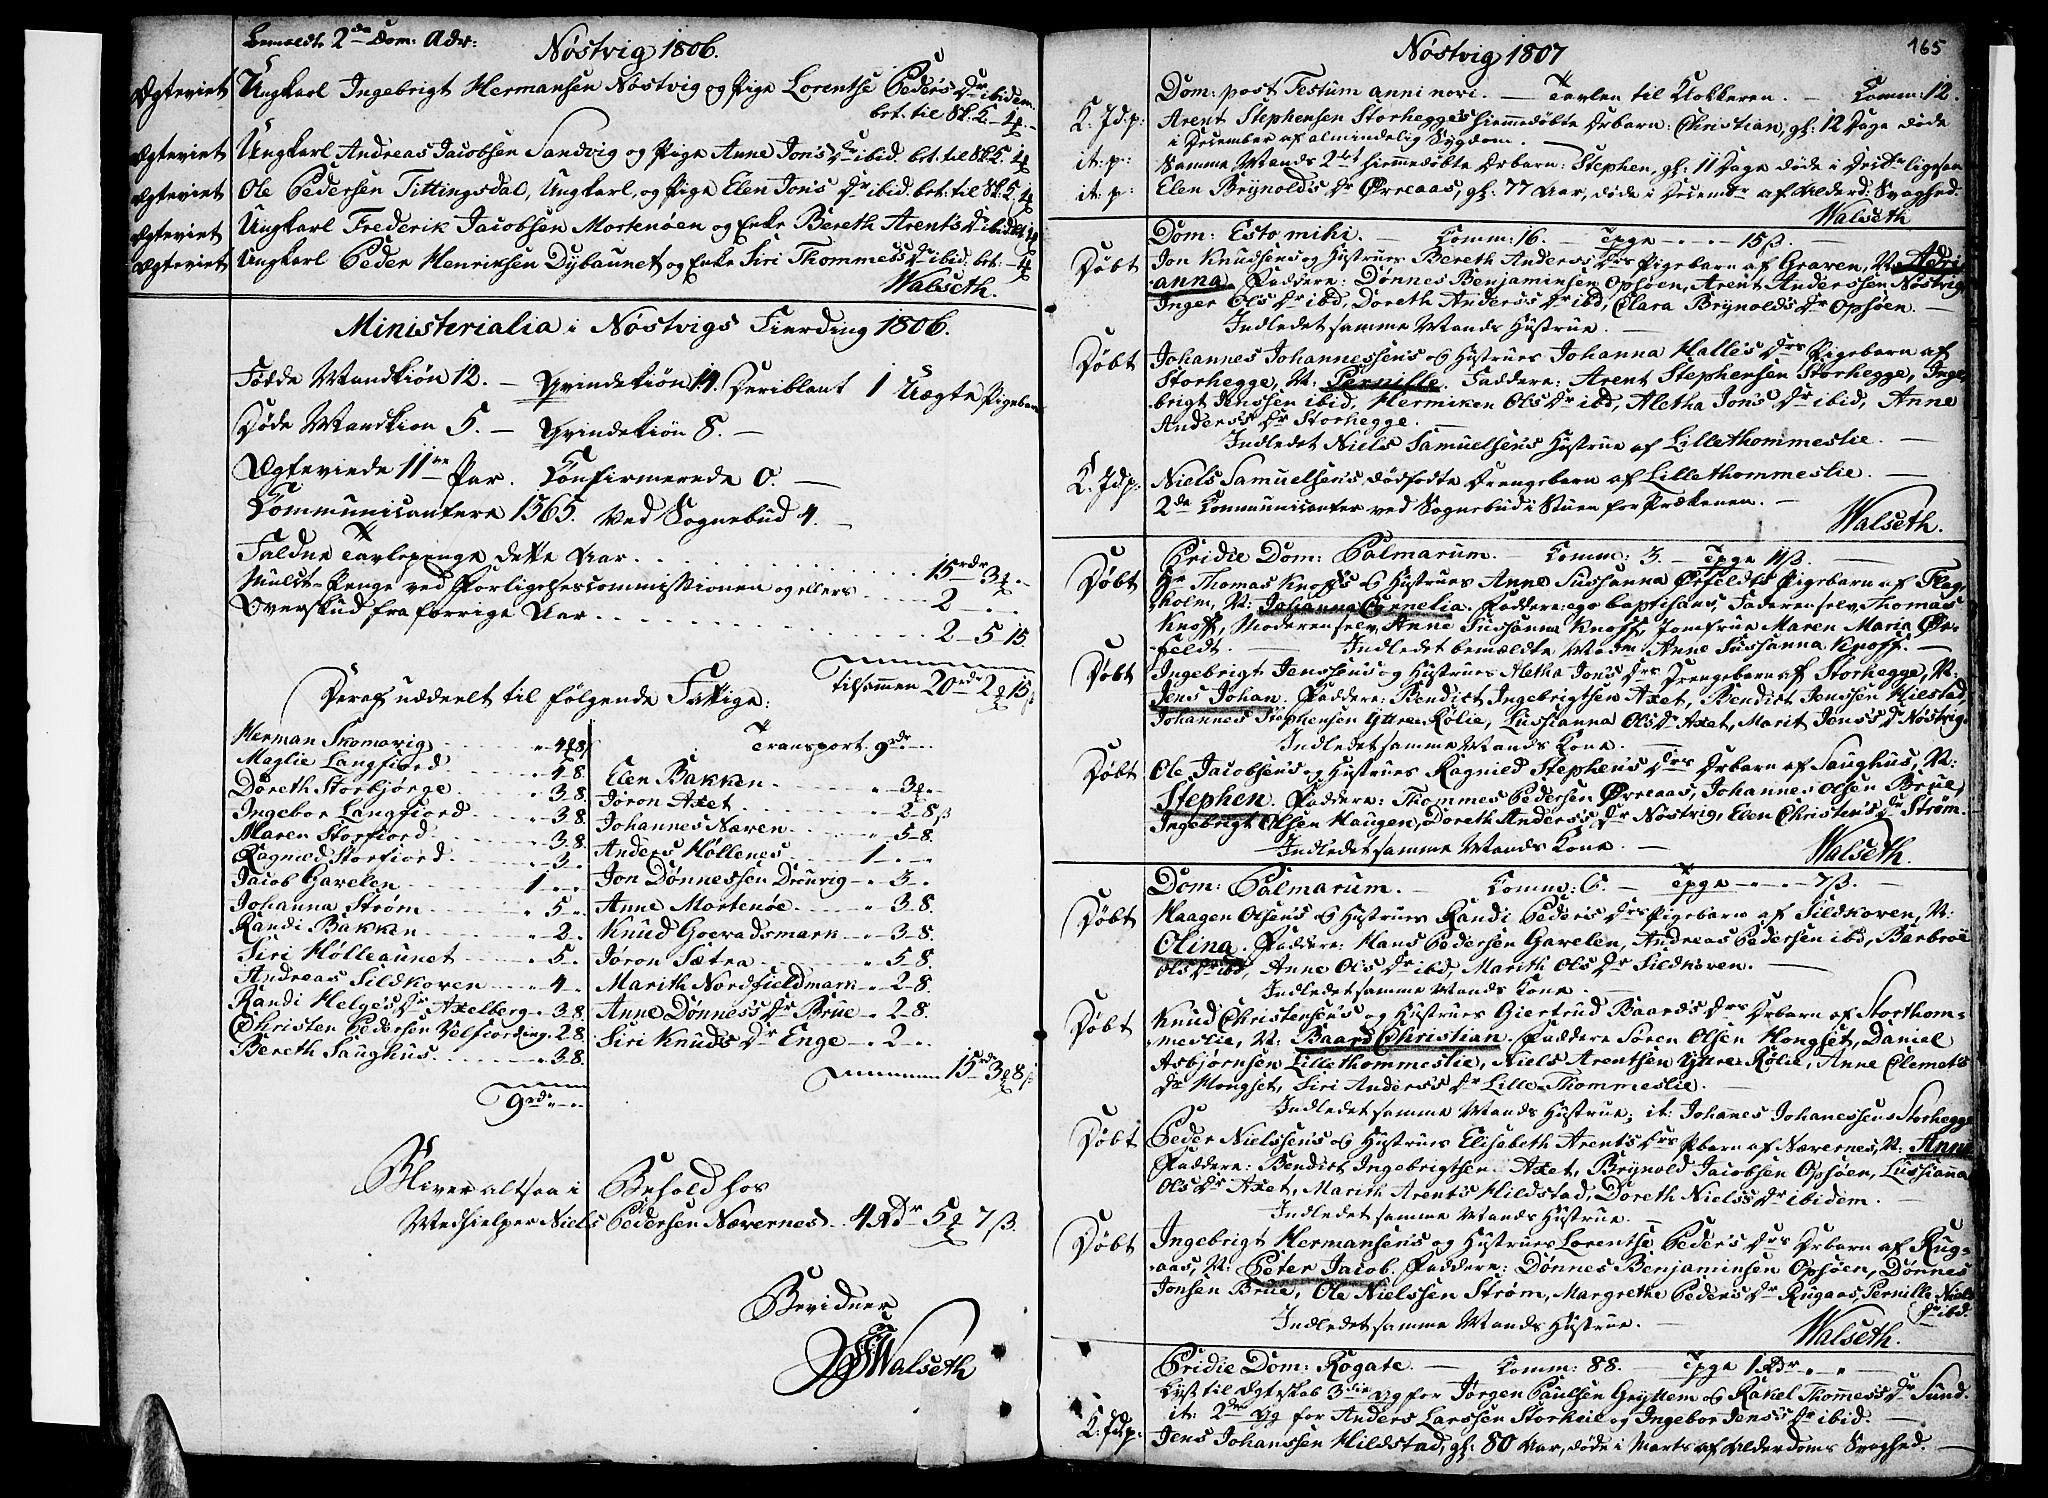 bemeldte 2de Dom: Adv:
Nøstvig 1806.
Ægteviet Ungkarl Ingebrigt Hermansen Nøstvig og Pige Lorentse Peders Dr ibidem.
bet. til Sk. 2
Ægteviet Ungkarl Andreas Jacobsen Sandvig og Pige Anne Jons Dr ibid. bet: til Sk. 5.
Ægteviet Ole Pedersen Tittingsdal, Ungkarl, og Pige Elen Jons Dr ibid. bet: til Sk. 2
Ægteviet Ungkarl Frederik Jacobsen Mortenøen og Enke Bereth Arents Dr ibid.
Ægteviet Ungkarl Peder Henriksen Dybaunet og Enke Siri Thommess Dr ibid. bet:
Walseth.
Ministerialia i Nøstvigs Fierding 1806.
Fødde Mandkiøn 12. — Qvindekiøn 14. Deriblant 1 Uægte Pigebarn
Døde Mandkiøn 5. — Qvindekiøn 8. —
Ægteviede 11ve Par. Konfirmerede 0. —
Kommunicantere 1365. Ved Sognebud 4. —
Faldne Tavlepenge dette Aar . . . 15 rdr 3
Mulct-Penge ved Forligelsescommissionen og ellers . . . 2 — —
Overskud fra forrige Aar . . . 2 - 5 - 15.
tilsammen 20 rdr 2 15
Deraf uddeelt til følgende Fattige:
Herman Skomovig . . 4 8
Maglie Langfiord . . 4 8.
Doreth Storbjørge . . 3 8.
Ingebor Langfiord . . 3 8.
Maren Storfiord . . 3 8.
Ragnild Storfiord . . 3
Jacob Gavelen . . 1
Johanna Strøm . . 5
Randi Bakken . . 2
Siri Hølleaunet . . 5
Andreas Sildkoven . . 4
Randi Helges Dr Axelberg . 3 8.
Christen Pedersen Velfiording. 2 8
Bereth Saughus . . 3 8.
9 rdr
Transport 9 rdr
Elen Bakken . . 3
Jøron Axet . . 2 - 8 ß
Johannes Næven . . 5 - 8.
Anders Høllenes . . 1
Jon Dønnessen Drevvig . 3
Anne Mortenøe . . 3 8.
Knud Goeradsmark . . 3 - 8.
Jøron Sætra . . 5 8
Marith Nordfieldmark . . 2 - 8.
Anne Dønness Dr Brue . 2 - 8.
Siri Knuds Dr Enge . 2
15 rdr 3 8 ß
Bliver altsaa i Behold hos
Medhielper Niels Pedersen Nævernes . . 4 Rdr 5 7 ß.
Bevidner
Walseth
165
Nøstvig 1807
Dom: post Festum anni novi. — Tavlen til Klokkeren. — Comm: 12.
K. Jdp: Arent Stephensen Storhegges hiemmedøbte Drbarn: Christian, gl: 12 Dage døde
i December af almindelig Sygdom. —
it: p: Samme Mands 2det hiemmedøbte Drbarn: Stephen, gl: 11 Dage døde i Decbr ligesaa
it: p: Elen Brynolds Dr Ørreaas, gl: 77 Aar, døde i Decembr af Alderd: Svaghed.
Walseth
Dom: Esto mihi. — Comm: 16. — Tpge 15 ß. —
Døbt Jon Knudsens og Hustrues Bereth Anders Drs Pigebarn af Graven, N: Adri-
anna. Faddere: Dønnes Benjaminsen Opsøen, Arent Anderssen Nøstvig
Inger Ols Dr ibd, Doreth Anderss Dr ibd, Clara Brynolds Dr Opsøen. —
Indledet samme Mands Hustrue. —
Døbt Johannes Johannessens & Hustrues Johanna Halles Drs Pigebarn af
Storhegge, N: Pernille. Faddere: Arent Stephensen Storhegge, Inge-
brigt Jenssen ibid, Hermiken Ols Dr ibd, Aletha Jons Dr ibid, Anne
Anderss Dr Storhegge. —
Indledet Niels Samuelsens Hustrue af Lillethommeslie. —
K. Jdp: Niels Samuelsens dødfødte Drengebarn af Lillethommeslie. —
2de Communicanter ved Sognebud i Stuen for Prækenen. —
Walseth.
Pridie Dom: Palmarum. — Comm: 3. — Tpge 11 ß. —
Døbt Hr Thomas Knoffs & Hustrues Anne Sussanna Ørfeldts Pigebarn af Flag-
holm, N: Johanna Cornelia. Faddere: ego baptisans, Faderen selv Thomas
Knoff, Moderen selv Anne Sussanna Knoff, Jomfrue Maren Maria Ør-
feldt. — Indledet bemældte Madm Anne Sussanna Knoff. —
Døbt Ingebrigt Jenssens og Hustrues Aletha Jons Drs Drengebarn af Storhegge, N:
Jens Johan. Faddere: Bendict Ingebrigtsen Axet, Bendict Jonssen Hilstad,
Johannes Stephensen Yttre-Rølie, Lussianna Ols Dr Axet, Marit Jenss Dr Nøstvig.
Indledet samme Mands Kone. —
Døbt Ole Jacobsens og Hustrues Ragnild Stephens Drs Drbarn af Saughus, N:
Stephen. Faddere: Thommes Pedersen Ørreaas, Johannes Olsen Brue,
Ingebrigt Olsen Haugen, Doreth Anderss Dr Nøstvig, Elen Christens Dr Strøm.
Indledet samme Mands Kone. —
Walseth.
Dom: Palmarum. — Comm: 6. — Tpge 7 ß. —
Døbt Haagen Olsens & Hustrues Randi Peders Drs Pigebarn af Sildkoven, N:
Olina. Faddere: Hans Pedersen Gavelen, Andreas Pedersen ibd, Barbroe
Ols Dr ibd, Anne Ols Dr ibd, Marith Ols Dr Sildkoven. —
Indledet samme Mands Kone. —
Døbt Knud Christensens og Hustrues Giertrud Baards Drs Drbarn af Storthom-
meslie, N: Baard Christian. Faddere Søren Olsen Hongset, Daniel
Asbjørnsen Lillethommeslie, Niels Arentsen Yttre-Rølie, Anne Clemets
Dr Hongset, Siri Anderss Dr Lille-Thommeslie. —
Indledet samme Mands Hustrue; it: Johannes Johanessens Storhegge
Døbt Peder Nielssens & Hustrues Elisabeth Arents Drs Pbarn af Nævernes, N: Anne
Faddere: Bendict Ingebrigtsen Axet, Brynold Jacobsen Opsøen, Lussianna
Ols Dr Axet, Marith Arents Hildstad, Doreth Nielss Dr ibidem. —
Indledet samme Mands Hustrue. —
Døbt Ingebrigt Hermansens og Hustrues Lorentse Peders Drs Drbarn af Rug-
aas, N: Peter Jacob. Faddere: Dønnes Benjaminsen Opsøen, Dønnes
Jonsen Brue, Ole Nielssen Strøm, Margrethe Peders Dr Rugaas, Pernille Niels
Dr ibd.
Indledet samme Mands Hustrue. —
Walseth.
Pridie Dom: Rogate. — Comm: 88. Tpge 1 Rdr
Lyst til Ægteskab 3die Gg for Jørgen Paulsen Gryttem & Rakel Thommess Dr Sund.
it: 2den Gg for Anders Larssen Storheie og Ingebor Jens Dr ibid. —
K. Jdp: Jens Johanssen Hildstad, gl: 80 Aar, døde i Marts af Alderdoms Svaghed. —